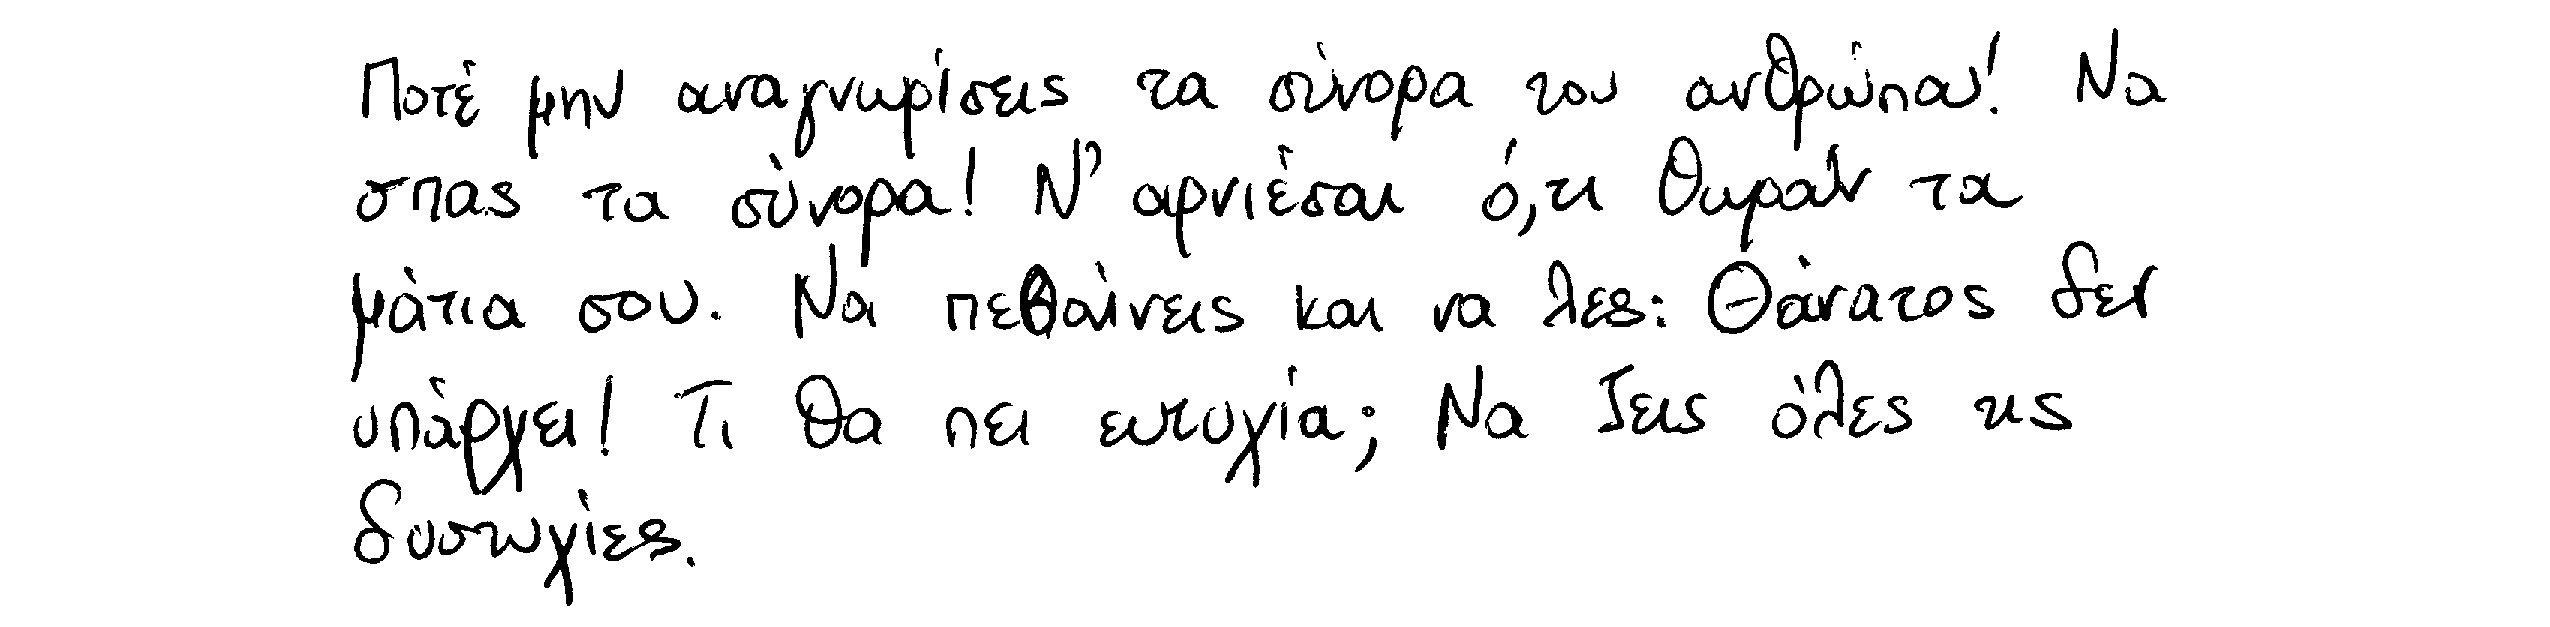 Ποτέ μην αναγνωρίσεις τα σύνορα του ανθρώπου! Να
σπας τα σύνορα! Ν' αρνιέσαι ό,τι θωρούν τα
μάτια σου. Να πεθαίνεις και να λες: Θάνατος δεν
υπάρχει! Τι θα πει ευτυχία; Να ζεις όλες τις
δυστυχίες.